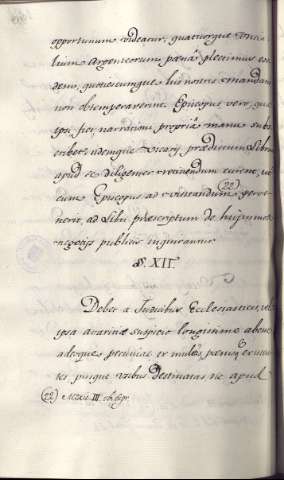 opportunum videatur, quatuorque
argenteorum pœnâ plectimus eos-
dem, quotiescumque his nostris mandatis
non obtemperaverint. Episcopus vero, qui
ipsi fiet, narrationi propriâ manu subs
cribet, idemque Vicarij prædictum Librum
apud se diligenter retinendum curent, ut
cum Episcopus ad visitandum (22) perve-
nerit, ad Libri præscriptum de hujusmodi
negotijs publicis inquirantur.
§. XII.
Debet a Judicibus Ecclesiasticis, vel
ipsa avaritiæ suspicio longissime abesse
adeoque pecunias ex multis, pœnisq. exigen-
tes pijsque usibus destinatas, ne apud
(22) Mexic. III.